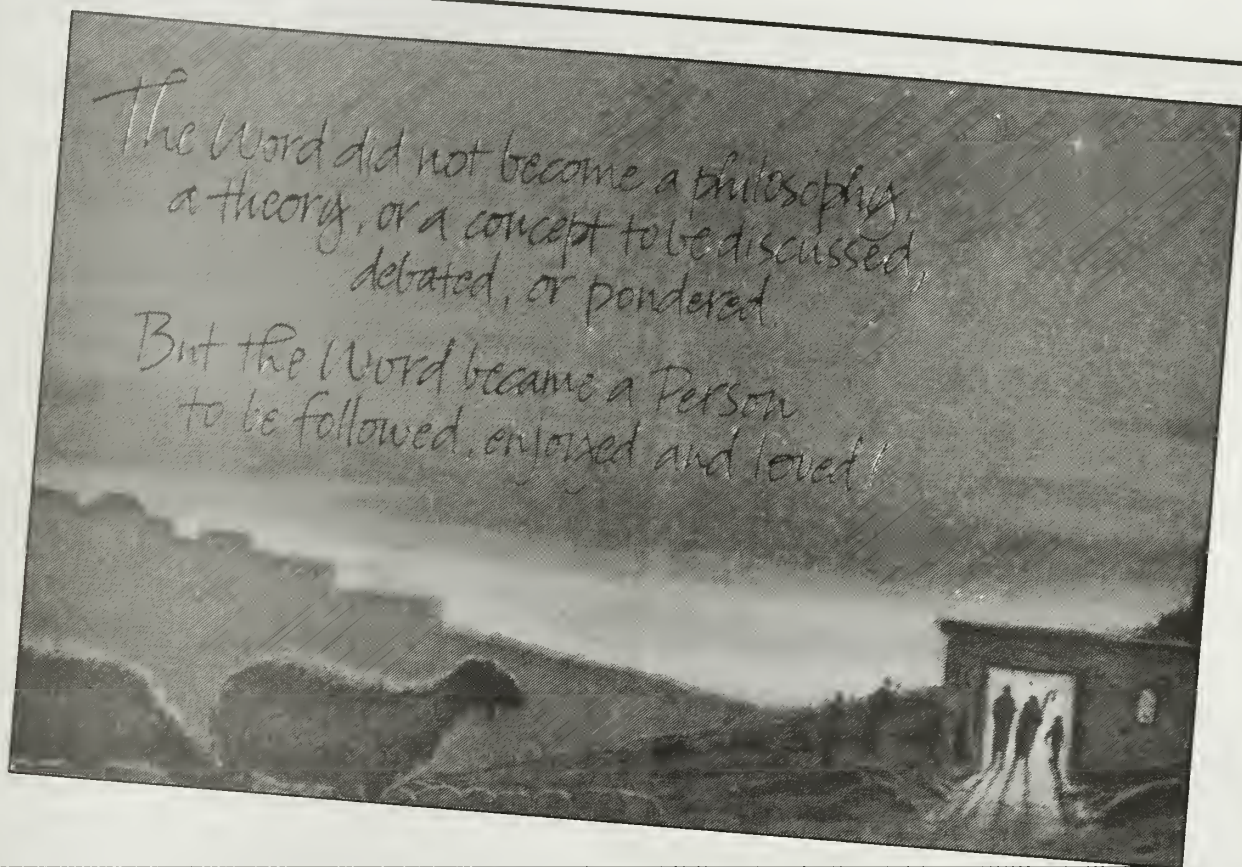 The Word did not become a philosophy,
a theory, or a concept to be discussed,
debated, or pondered.
But the Word became a Person
to be followed, enjoyed and loved!